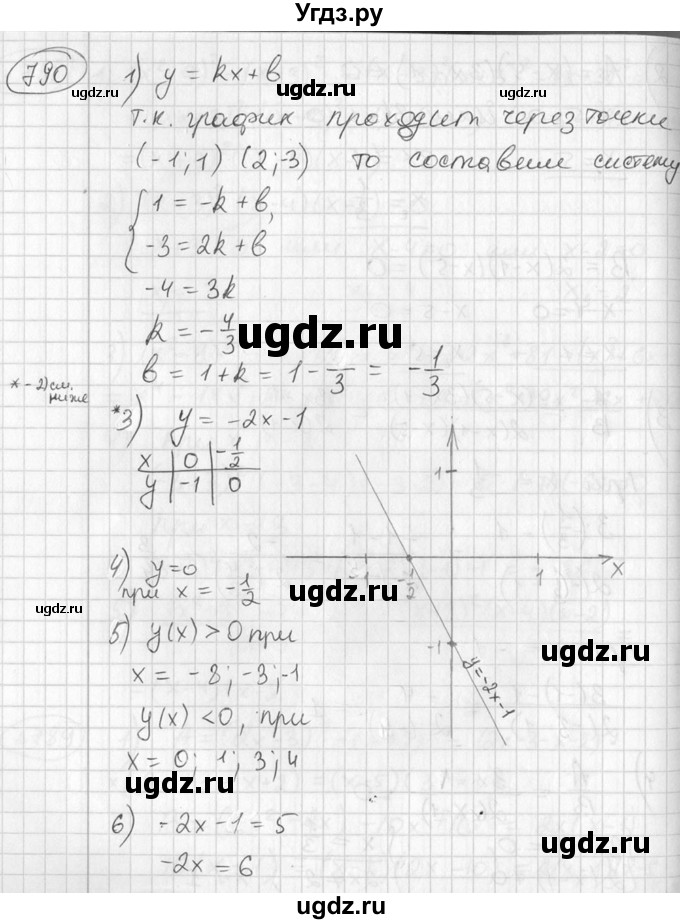 Угдз.ру
790
1) y = kx + b
т.к. график проходит через точки
(-1; 1) (2; -3) то составим систему
{ 1 = -k + b,
-3 = 2k + b
-4 = 3k
k = -4/3
b = 1 + k = 1 - /3 = -1/3
* - 2) см. ниже
*3) y = -2x - 1
x | 0 | -1/2
y | -1 | 0
1
-1 -1/2 1 x
-1
y=-2x-1
4) y=0
при x = -1/2
5) y(x) > 0 при
x = -8; -3; -1
y(x) < 0, при
x = 0; 1; 3; 4
6) -2x - 1 = 5
-2x = 6
ugdz.ru
ugdz.ru
ugdz.ru
ugdz.ru
ugdz.ru
ugdz.ru
ugdz.ru
ugdz.ru
ugdz.ru
ugdz.ru
ugdz.ru
ugdz.ru
ugdz.ru
ugdz.ru